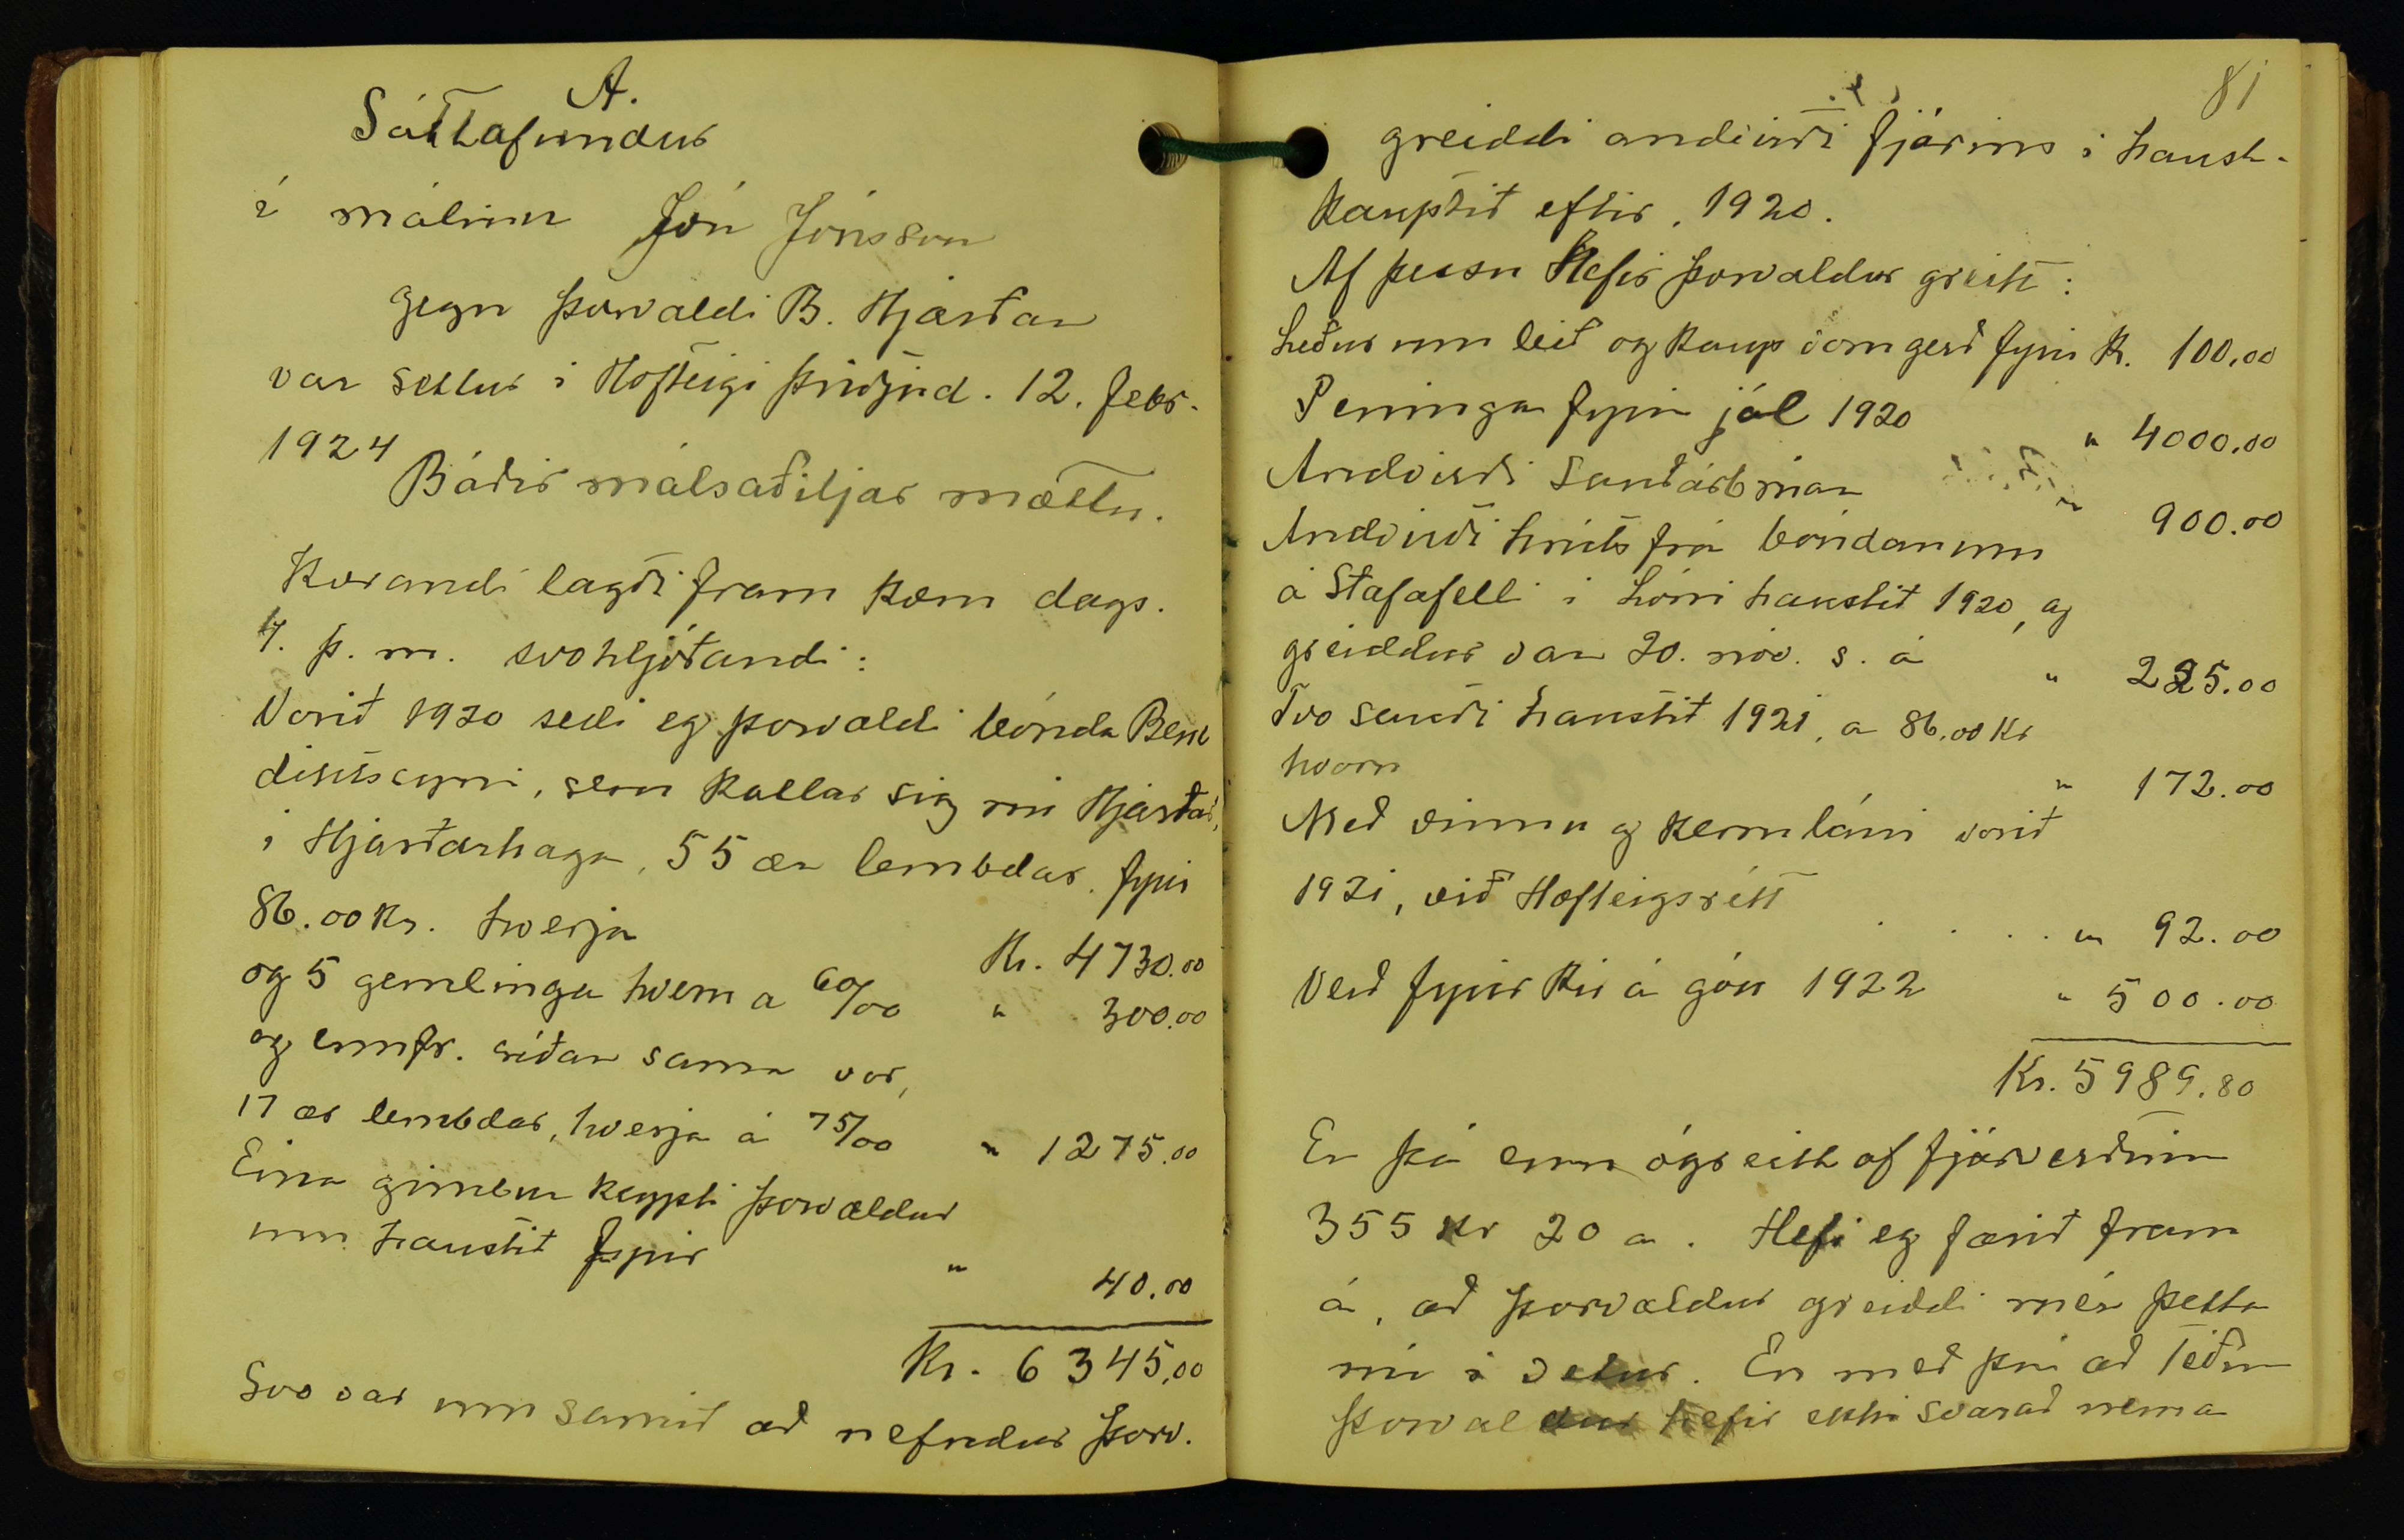 A.
Sáttafundur
í málinu Jón Jónsson
gegn Þorvaldi B. Hjarðar
var settur í Hofteigi þriðjud. 12. febr.
1924
Báðir málsaðiljar mættu.
Kærandi lagði fram kæru dags.
4. þ. m. svohljóðandi:
Vorið 1920 seldi eg Þorvaldi bónda Bene
diktssyni, sem kallar sig nú Hjarðar,
í Hjarðarhaga, 55 ær lembdar fyrir
86.00 kr. hverja Kr. 4730.00
og 5 gemlinga hvern a 60/00 " 300.00
og ennfr. síðar sama vor,
17 ær lembdar, hverja á 75/00 " 1275.00
Eina gimbur keypti Þorvaldur
um haustið fyrir " 40.00
Kr. 6345,00
Svo var um samið að nefndur Þorv.
81
greiddi andvirði fjárins í haust-
kauptíð eftir, 1920.
Af þessu hefir Þorvaldur greitt:
Leður um leið og kaup voru gerð fyrir K. 100,00
Peninga fyrir jól 1920 " 4000,00
Andvirði Sauðárbrúar " 900.00
Andvirði hrúts frá bóndanum
á Stafafelli í Lóni haustið 1920, og
greiddur var 20. nóv. s. á " 225.00
Tvo sauði haustið 1921, a 86,00 kr
hvorn " 172.00
Með vinnu og kerruláni vorið
1921, við Hofteigsrétt . . . . " 92.00
Verð fyrir kú á góu 1922 " 500.00
Kr. 5989.80
Er þá enn ógreitt af fjárverðinu
355 kr 20 a. Hefi eg farið fram
á, að Þorvaldur greiddi mér þetta
nú í vetur. En með því að téður
Þorvaldur hefir ekki svarað nema